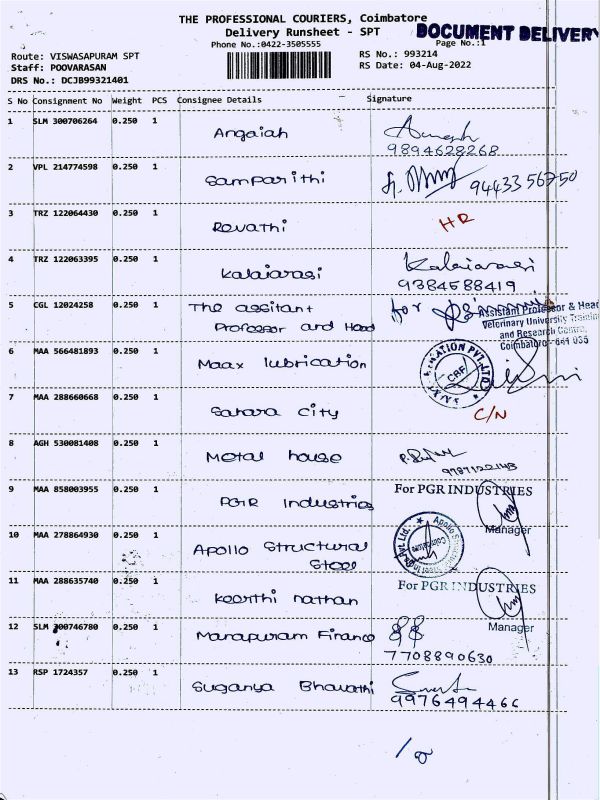 THE PROFESSIONAL COURIERS, Coimbatore
Delivery Runsheet - SPT
DOCUMENT DELIVERY
Phone No.:0422-3505555
Page No.:1
Route: VISWASAPURAM SPT
RS No.: 993214
Staff: POOVARASAN
RS Date: 04-Aug-2022
DRS No.: DCJB99321401
S No Consignment No Weight PCS Consignee Details Signature
1 SLM 300706264 0.250 1 Angaiah
9894628268
2 VPL 214774598 0.250 1 Samparithi 94433 56750
3 TRZ 122064430 0.250 1 Revathi HR
4 TRZ 122063395 0.250 1 Kalaiarasi Kalaiarasi
9384588419
5 CGL 12024258 0.250 1 The assitant for Assistant Professor & Head
Professor and Head Veterinary University Training
and Research Centre,
Coimbatore - 641 035
6 MAA 566481893 0.250 1 Maax lubrication CBE
7 MAA 288660668 0.250 1 Sahara City C/N
8 AGH 530081408 0.250 1 Metal house
9787122143
9 MAA 858003955 0.250 1 PGR Industries For PGR INDUSTRIES
Manager
10 MAA 278864930 0.250 1 Apollo Structural
Steel
11 MAA 288635740 0.250 1 Keerthi nathan For PGR INDUSTRIES
Manager
12 SLM 300746780 0.250 1 Manapuram Finance
7708890630
13 RSP 1724357 0.250 1 Suganya Bharathi
9976494466